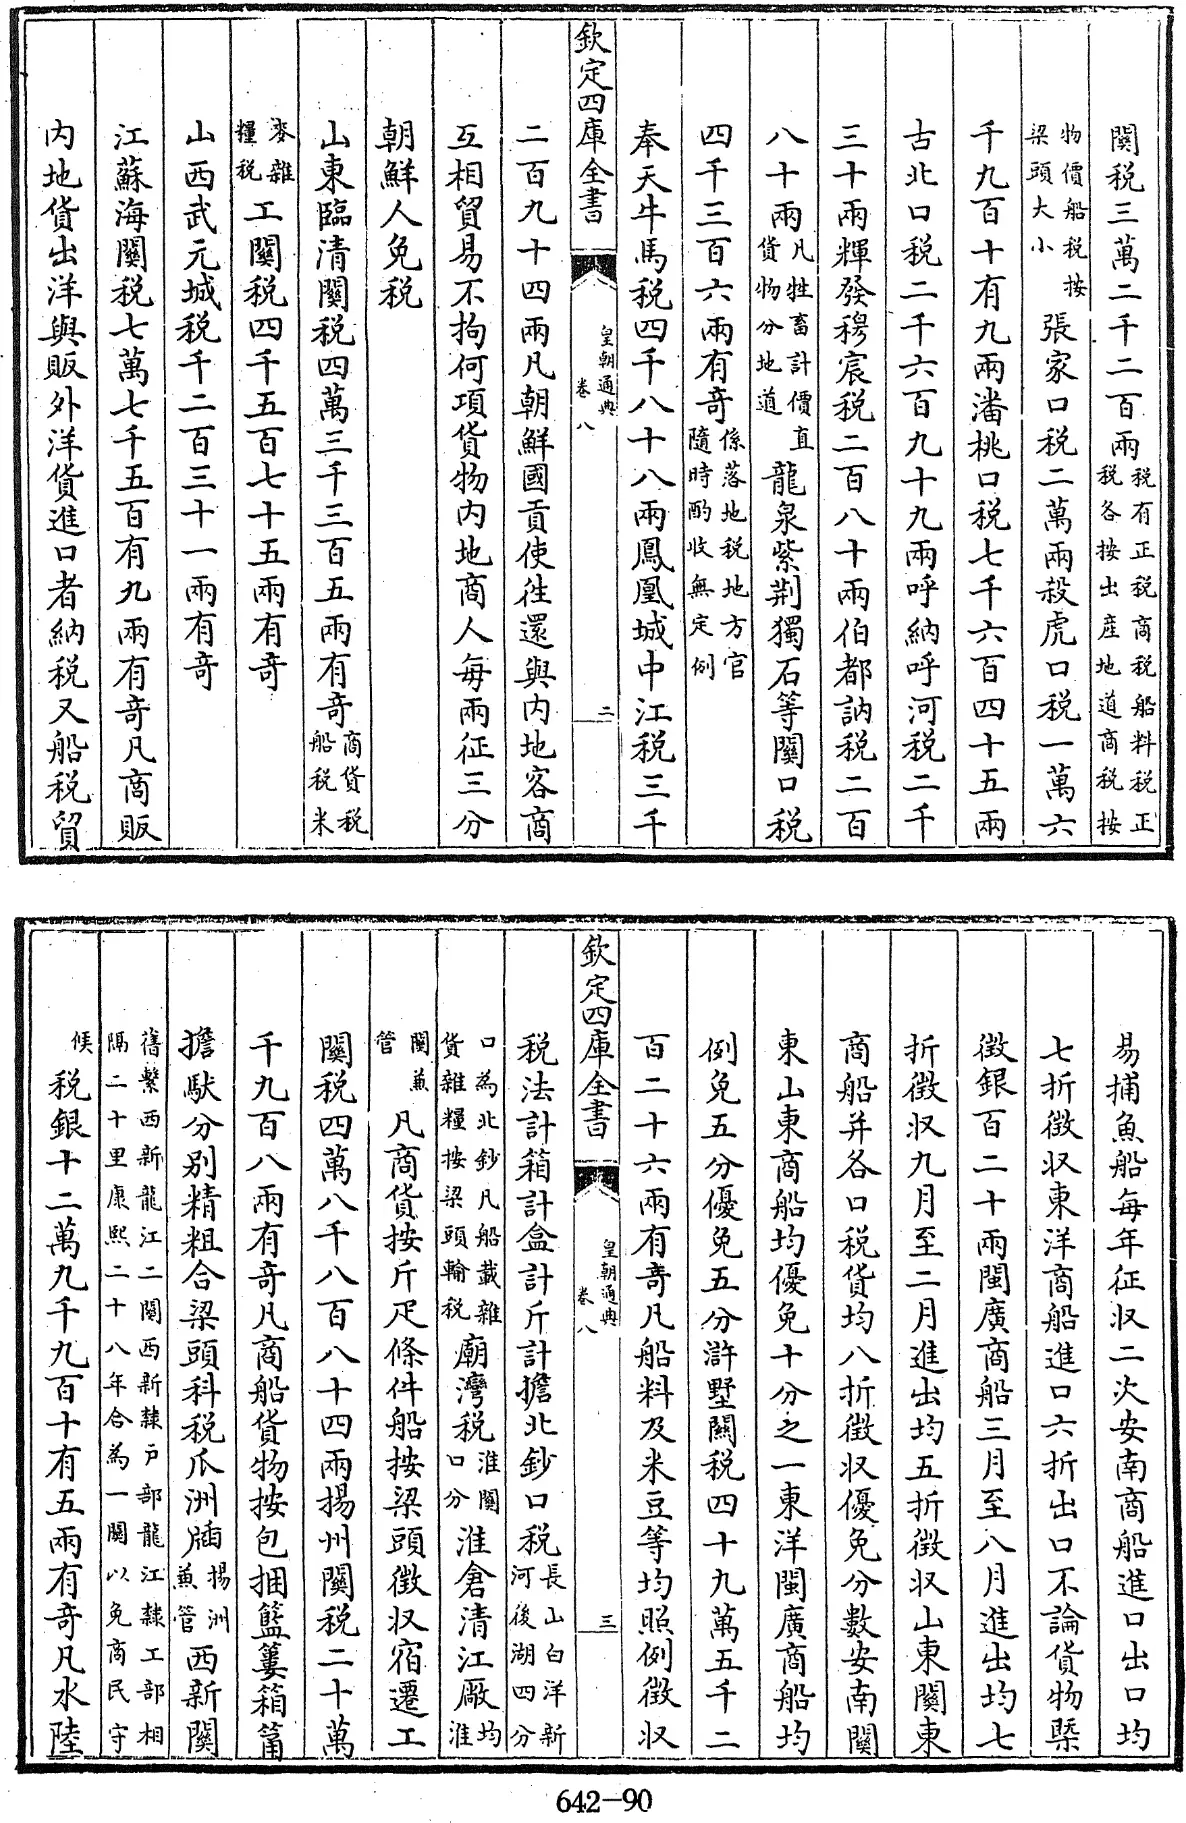 關税三萬二千二百兩税有正税商税船料税正税各按出産地道商税按
物價船税按梁頭大小張家口税二萬兩殺虎口税一萬六
千九百十有九兩潘桃口税七千六百四十五兩
古北口税二千六百九十九兩呼納呼河税二千
三十兩輝發穆宸税二百八十兩伯都訥税二百
八十兩凡牲畜計價直貨物分地道龍泉紫荆獨石等關口税
四千三百六兩有奇係落地税地方官隨時酌收無定例
奉天牛馬税四千八十八兩鳳凰城中江税三千
欽定四庫全書 皇朝通典 卷八 二
二百九十四兩凡朝鮮國貢使往還與内地客商
互相貿易不拘何項貨物内地商人每兩征三分
朝鮮人免税
山東臨清關税四萬三千三百五兩有奇商貨税船税米
麥雜糧税工關税四千五百七十五兩有奇
山西武元城税千二百三十一兩有奇
江蘇海關税七萬七千五百有九兩有奇凡商販
内地貨出洋與販外洋貨進口者納税又船税貿
易捕魚船每年征収二次安南商船進口出口均
七折徵収東洋商船進口六折出口不論貨物槩
徵銀百二十兩閩廣商船三月至八月進出均七
折徵収九月至二月進出均五折徵収山東關東
商船并各口税貨均八折徵収優免分數安南關
東山東商船均優免十分之一東洋閩廣商船均
例免五分優免五分滸墅關税四十九萬五千二
百二十六兩有奇凡船料及米豆等均照例徵収
欽定四庫全書 皇朝通典 卷八 三
税法計箱計盒計斤計擔北鈔口税長山白洋新河後湖四分
口為北鈔凡船載雜貨雜糧按梁頭輸税廟灣税淮關口分淮倉清江廠均淮
關兼管凡商貨按斤疋條件船按梁頭徵収宿遷工
關税四萬八千八百八十四兩揚州關税二十萬
千九百八兩有奇凡商船貨物按包捆籃簍箱筩
擔馱分别精粗合梁頭科税瓜洲牐揚洲兼管西新關
舊繫西新龍江二關西新隸戶部龍江隸工部相隔二十里康熙二十八年合為一關以免商民守
候税銀十二萬九千九百十有五兩有奇凡水陸
642-90